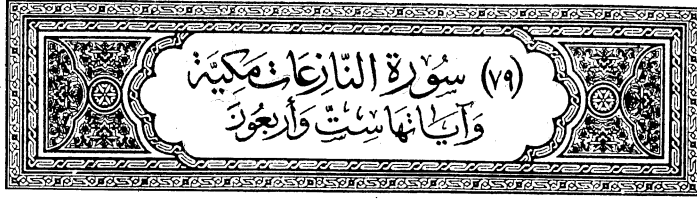 (٧٩) سُورَة النَّازِعَات مَكِيَّة
وَآيَاتهَا سِتّ وَأَربَعُونَ